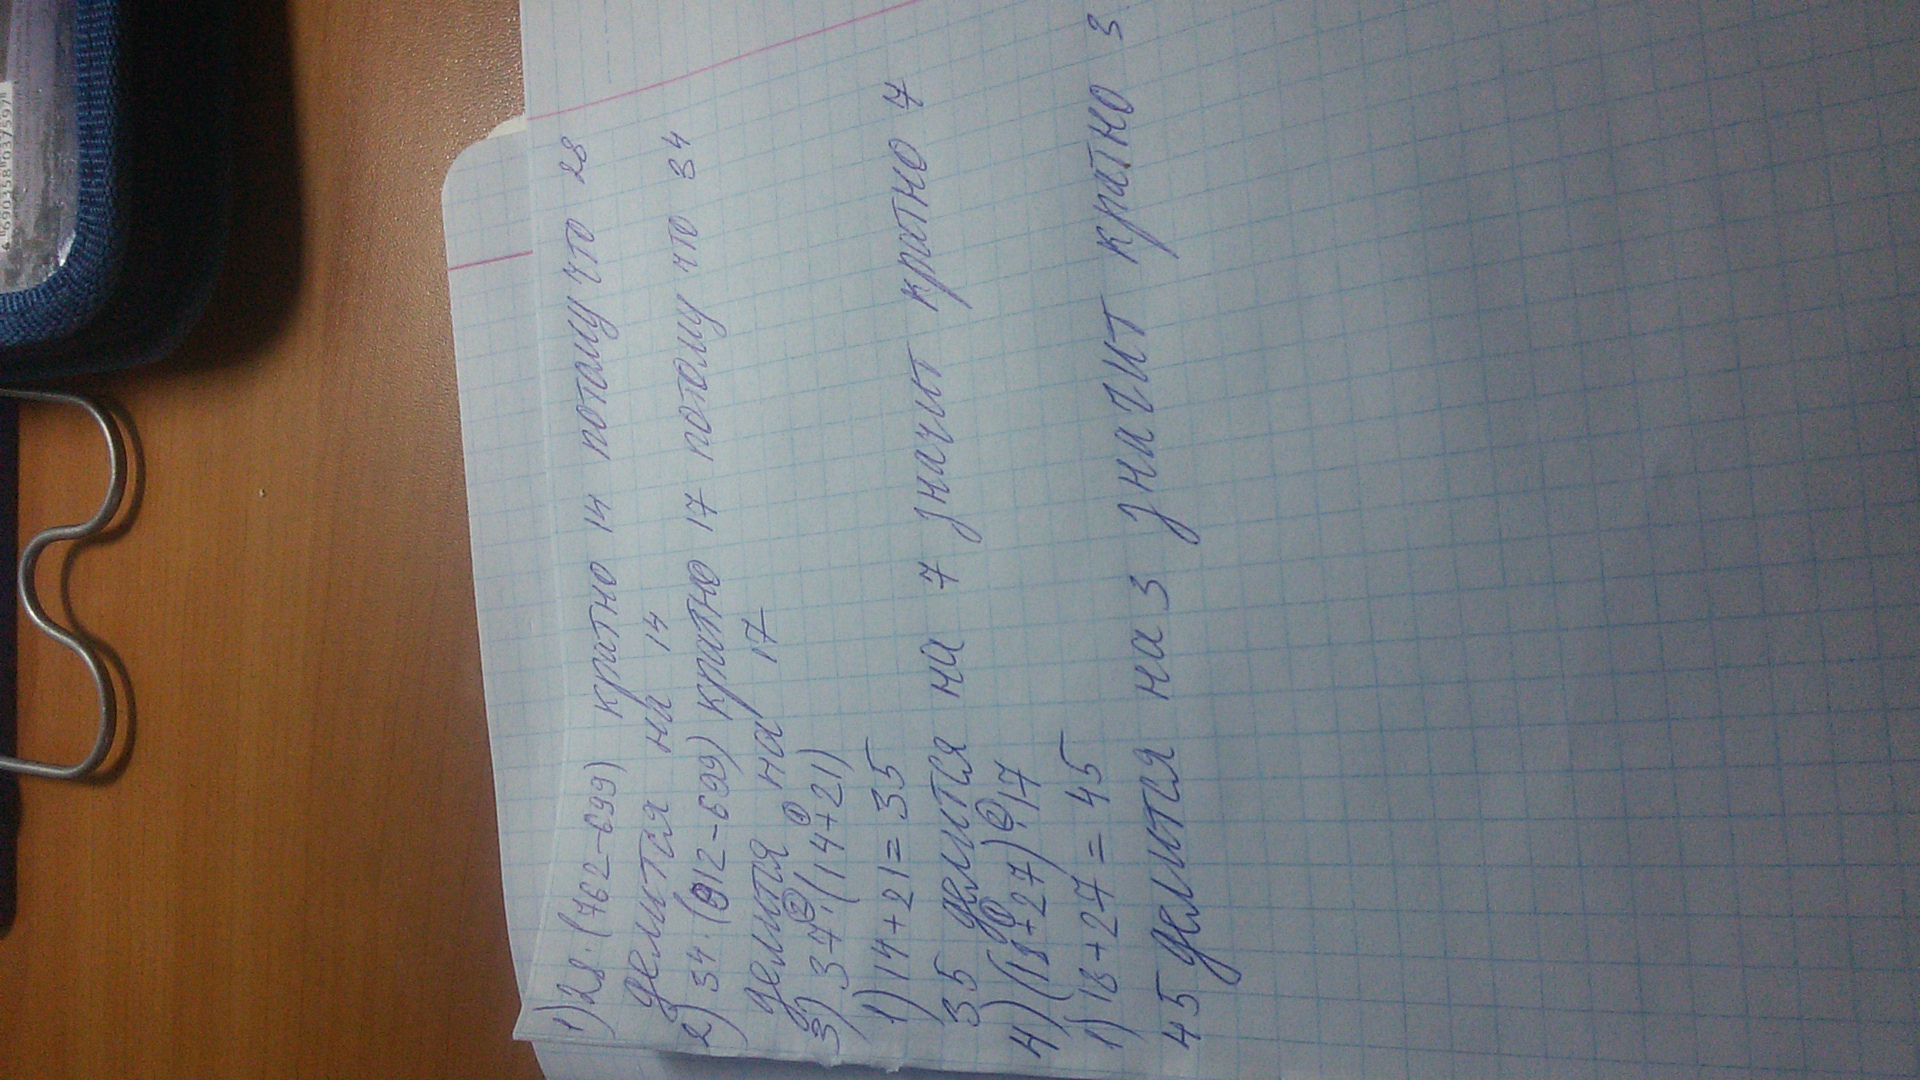 1) 28·(762-699) кратно 14 потому что 28
делится на 14
2) 34·(912-699) кратно 17 потому что 34
делится на 17
3) 37·(14+21)
1) 14+21=35
35 делится на 7 значит кратно 7
4) (18+27)·17
1) 18+27=45
45 делится на 3 значит кратно 3
4 690358 037597